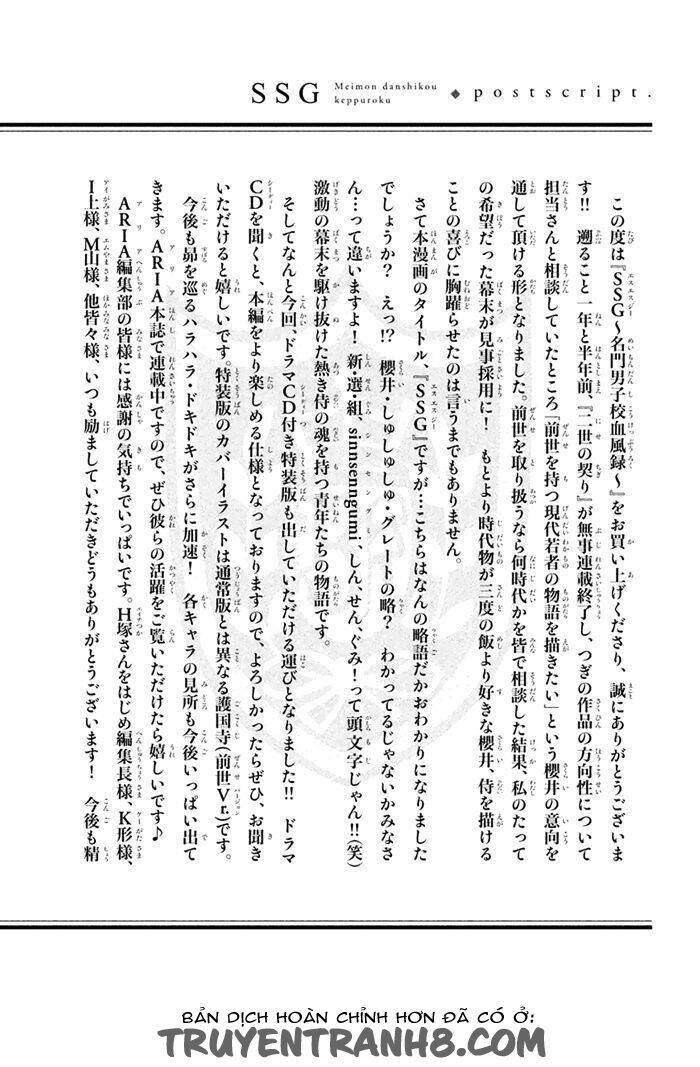 SSG
Meimon danshikou
keppuroku
◆ postscript.
この度は『SSG～名門男子校血風録～』をお買い上げくださり、誠にありがとうございま
す!! 遡ること一年と半年前、『二世の契り』が無事連載終了し、つぎの作品の方向性について
担当さんと相談していたところ「前世を持つ現代若者の物語を描きたい」という櫻井の意向を
通して頂ける形となりました。前世を取り扱うなら何時代かを皆で相談した結果、私のたって
の希望だった幕末が見事採用に! もとより時代物が三度の飯より好きな櫻井、侍を描ける
ことの喜びに胸躍らせたのは言うまでもありません。
さて本漫画のタイトル、『SSG』ですが…こちらはなんの略語だかおわかりになりました
でしょうか? えっ!? 櫻井・しゅしゅしゅ・グレートの略? わかってるじゃないかみなさ
ん…って違いますよ! 新・選・組、sinnsenngumi、しん、せん、ぐみ!って頭文字じゃん!!(笑)
激動の幕末を駆け抜けた熱き侍の魂を持つ青年たちの物語です。
そしてなんと今回、ドラマCD付き特装版も出していただける運びとなりました!! ドラマ
CDを聞くと、本編をより楽しめる仕様となっておりますので、よろしかったらぜひ、お聞き
いただけると嬉しいです。特装版のカバーイラストは通常版とは異なる護国寺(前世Vr.)です。
今後も昴を巡るハラハラ・ドキドキがさらに加速! 各キャラの見所も今後いっぱい出て
きます。ARIA本誌で連載中ですので、ぜひ彼らの活躍をご覧いただけたら嬉しいです♪
ARIA編集部の皆様には感謝の気持ちでいっぱいです。H塚さんをはじめ編集長様、K形様、
I上様、M山様、他皆々様、いつも励ましていただきどうもありがとうございます! 今後も精
BẢN DỊCH HOÀN CHỈNH HƠN ĐÃ CÓ Ở:
TRUYENTRANH8.COM